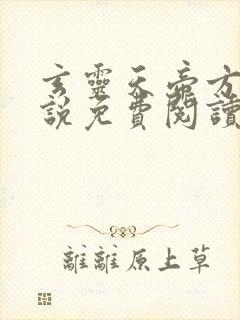 玄靈天帝方
說免費閱讀
離離原上草